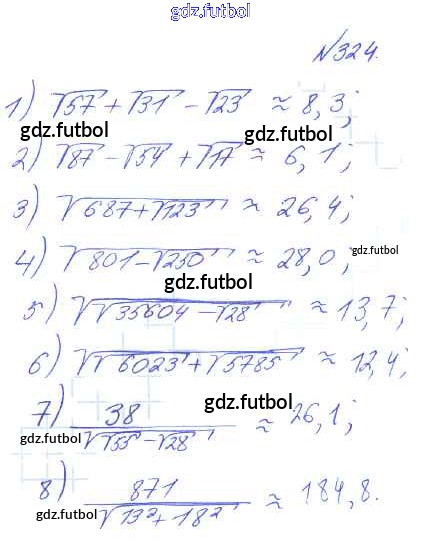 gdz.futbol
№324.
1) √57 + √31 - √23 ≈ 8,3;
gdz.futbol gdz.futbol
2) √87 - √54 + √17 ≈ 6,1;
3) √(687+√123) ≈ 26,4;
gdz.futbol
4) √(801-√250) ≈ 28,0;
gdz.futbol
5) √(√35604 - √28) ≈ 13,7;
6) √(√6023 + √5785) ≈ 12,4;
7) 38 / √(√55 - √28) ≈ 26,1;
gdz.futbol
gdz.futbol
8) 871 / √(13² + 18²) ≈ 184,8.
gdz.futbol